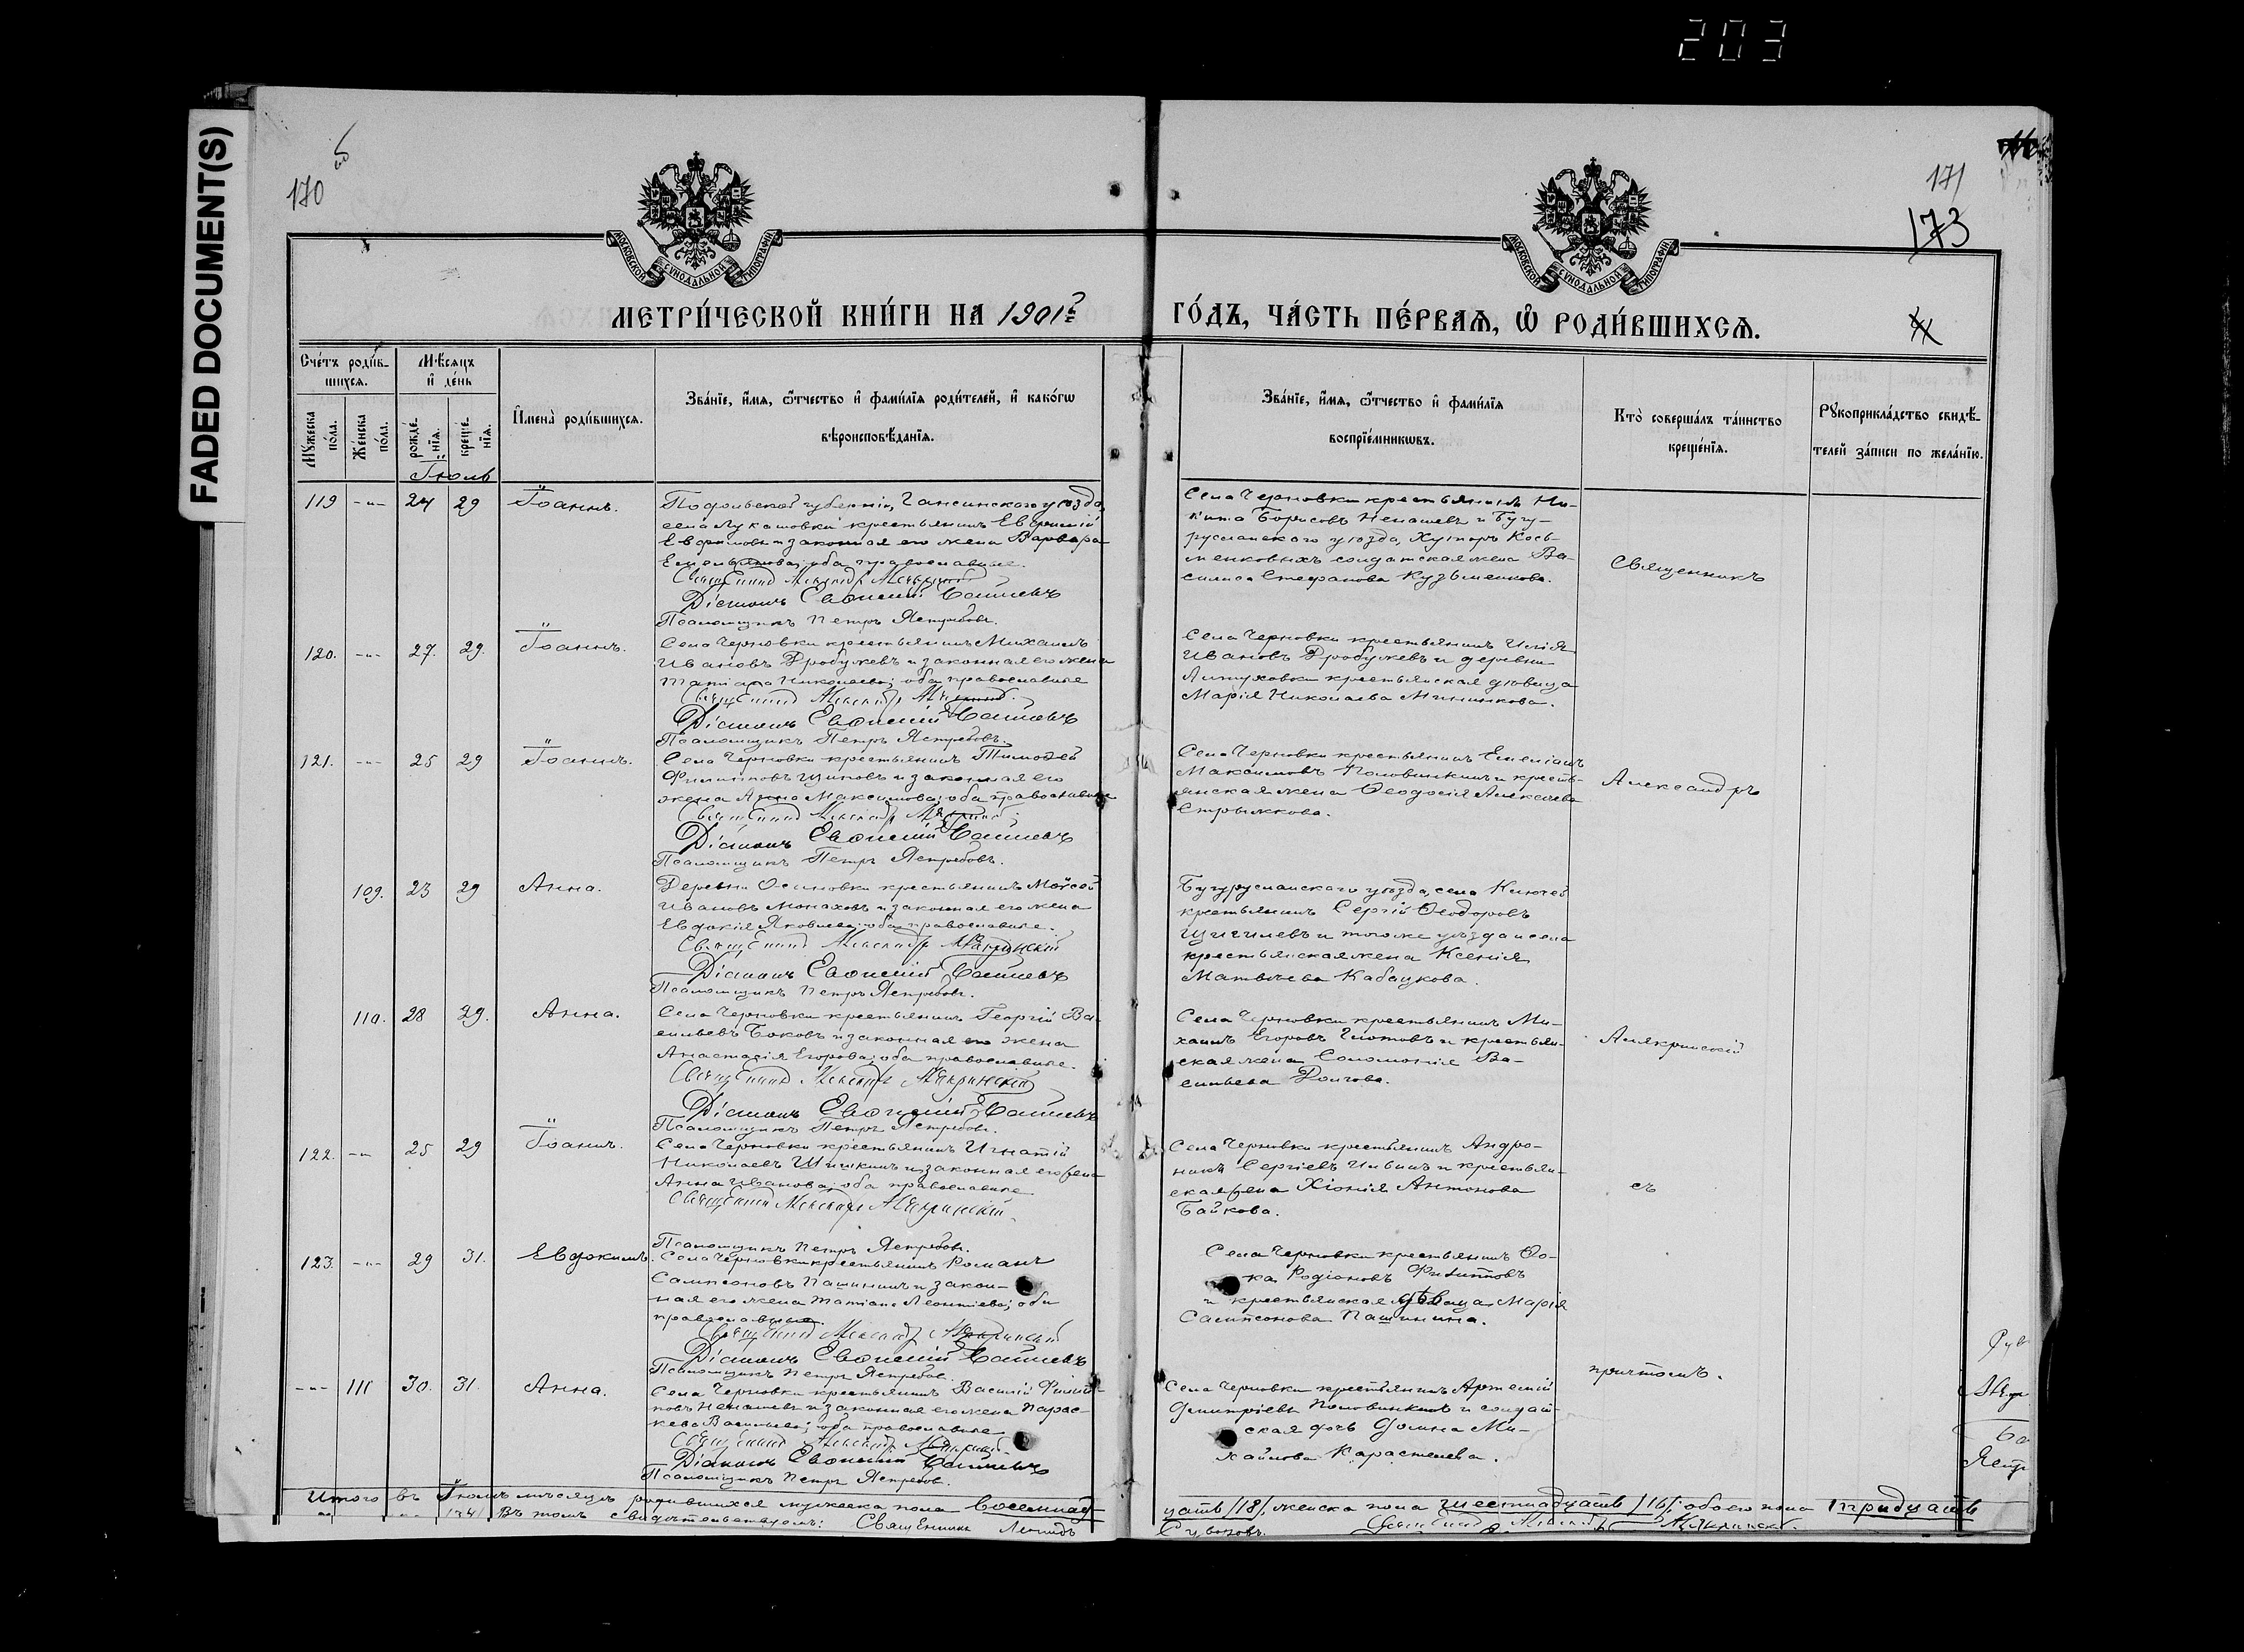 203
FADED DOCUMENT(S)
170 об
171
173
МОСКОВСКОЙ СУНОДАЛЬНОЙ ТИПОГРАФІИ
МОСКОВСКОЙ СУНОДАЛЬНОЙ ТИПОГРАФІИ
МЕТРИ́ЧЕСКОЙ КНИ́ГИ НА 1901 ГО́ДЪ, ЧА́СТЬ ПЕ́РВАѦ, Ѡ҆ РОДИ́ВШИХСѦ.
Сче́тъ роди́в-
шихся.
Мѣ́сяцъ
и҆ де́нь
Мꙋ́жеска по́ла.
Же́нска по́ла.
рожде́-
нїя.
креще́-
нїя.
И҆мена̀ роди́вшихся.
Зва́нїе, и҆́мя, ѻ҆́тчество и҆ фами́лїя роди́телей, и҆ како́гѡ
вѣроисповѣ́данїя.
Зва́нїе, и҆́мя, ѻ҆́тчество и҆ фами́лїя
воспрїе́мникѡвъ.
Кто̀ соверша́лъ та́инство
креще́нїя.
Рꙋкоприкла́дство свидѣ́-
телей за́писи по жела́нїю.
Іюль
119 -"- 24 29 Іоаннъ.
Подольской губерніи, Гайсинскаго уѣзда,
села Лукашовки крестьянинъ Евфимій
Евфимовъ и законная его жена Варвара
Емельянова; оба православные.
Діаконъ Евфимій
Псаломщикъ Петръ Ястребовъ.
Села Черновки крестьянинъ Ни-
кита Борисовъ Ненашевъ и Бугу-
русланскаго уѣзда, Хуторъ Кось-
менковыхъ солдатская жена Ва-
силиса Стефанова Кузьменкова.
Священникъ
120. -"- 27. 29. Іоаннъ.
Села Черновки крестьянинъ Михаилъ
Ивановъ Дробужевъ и законная его жена
Татіана Николаева; оба православные
Священникъ Александръ
Діаконъ Евфимій
Псаломщикъ Петръ Ястребовъ.
Села Черновки крестьянинъ Илія
Ивановъ Дробужевъ и деревни
крестьянская дѣвица
Марія Николаева Мининкова.
121. -"- 25 29 Іоаннъ.
Села Черновки крестьянинъ Тимоѳей
Филипповъ Щиповъ и законная его
жена Анна Максимова; оба православные
Священникъ Александръ
Діаконъ Евфимій
Псаломщикъ Петръ Ястребовъ.
Села Черновки крестьянинъ Емеліанъ
Максимовъ Половинкинъ и кресть-
янская жена Ѳеодосія Алексѣева
Стрыжкова.
Александръ
109. 23 29 Анна.
Деревни Осиновки крестьянинъ Моѵсей
Ивановъ Монаховъ и законная его жена
Евдокія Яковлева; оба православные.
Священникъ Александръ
Діаконъ Евфимій
Псаломщикъ Петръ Ястребовъ.
Бугурусланскаго уѣзда, села Ключей
крестьянинъ Сергій Ѳеодоровъ
Щигилевъ и того же уѣзда и села
крестьянская жена Ксенія
Матвѣева Кабацкова.
110. 28 29. Анна.
Села Черновки крестьянинъ Георгій Ва-
сильевъ Боковъ и законная его жена
Анастасія Егорова; оба православные.
Священникъ Александръ
Діаконъ Евфимій
Псаломщикъ Петръ Ястребовъ.
Села Черновки крестьянинъ Ми-
хаилъ Егоровъ Глотовъ и крестьян-
ская жена Соломонія Ва-
сильева Долгова.
122. -"- 25 29 Іоаннъ.
Села Черновки крестьянинъ Игнатій
Николаевъ Шишкинъ и законная его жена
Анна Иванова; оба православные
Священникъ Александръ
Псаломщикъ Петръ Ястребовъ.
Села Черновки крестьянинъ Андро-
никъ Сергіевъ Ильинъ и крестьян-
ская жена Хіонія Антонова
Байкова.
съ
123. -"- 29 31. Евдокимъ.
Села Черновки крестьянинъ Романъ
Сампсоновъ Пашининъ и закон-
ная его жена Татіана Леонтіева; оба
православные.
Священникъ Александръ
Діаконъ Евфимій
Псаломщикъ Петръ Ястребовъ.
Села Черновки крестьянинъ Ѳо-
ка Родіоновъ Филипповъ
и крестьянская дѣвица Марія
Сампсонова Пашинина.
причтомъ.
-"- 111 30. 31. Анна.
Села Черновки крестьянинъ Василій Филип-
повъ Ненашевъ и законная его жена Парас-
кева Васильева; оба православные
Священникъ Александръ
Діаконъ Евфимій
Псаломщикъ Петръ Ястребовъ.
Села Черновки крестьянинъ Артемій
Димитріевъ Половинкинъ и солдат-
ская дочь Домна Ми-
хайлова Карастелева.
Итого въ Іюлѣ мѣсяцѣ родившихся мужеска пола восемнад-
цать /18/, женска пола шестнадцать /16/, обоего пола тридцать
/34/. Въ томъ свидѣтельствуемъ: Священникъ Леонидъ
Суворовъ.